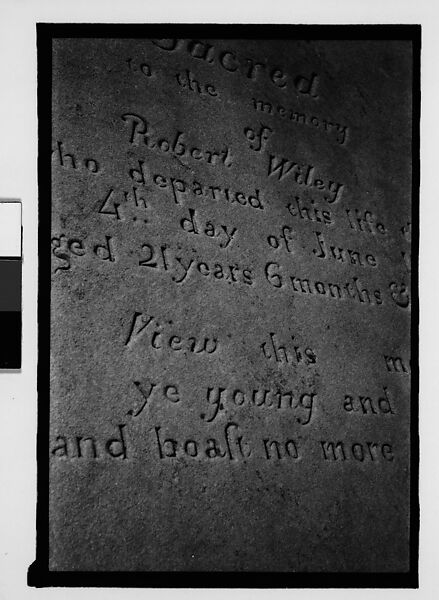 Sacred
to the memory
of
Robert Wiley
who departed this life
4th day of June
aged 21 years 6 months &
View this
ye young and
and boaſt no more